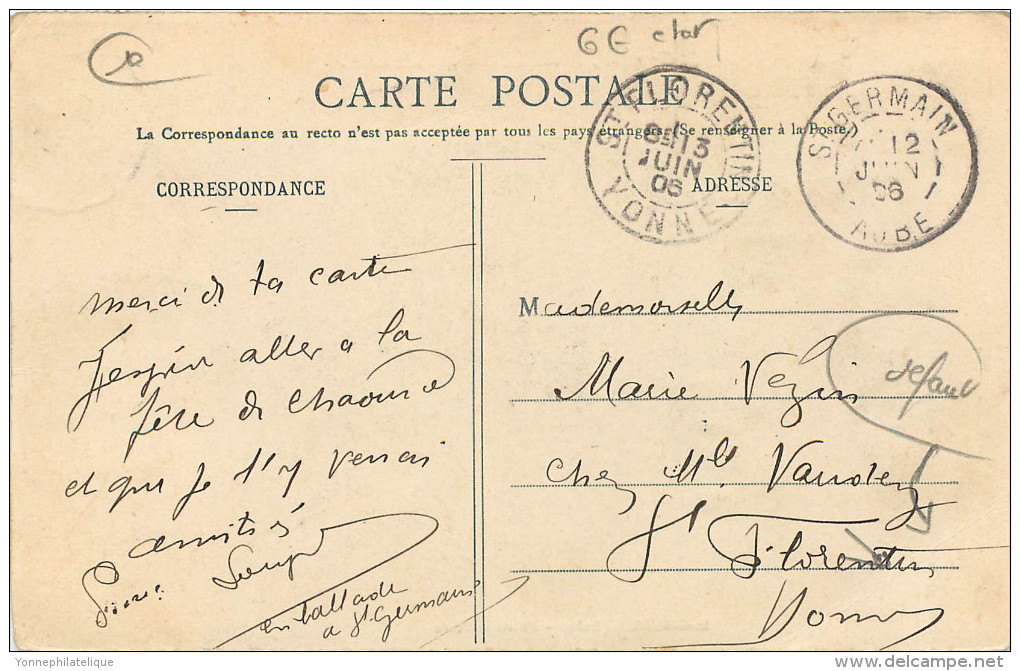 6 € clar
CARTE POSTALE
La Correspondance au recto n'est pas acceptée par tous les pays étrangers. (Se renseigner à la Poste)
CORRESPONDANCE
ADRESSE
ST FLORENTIN
13
JUIN
06
YONNE
ST GERMAIN
12
JUIN
06
AUBE
merci de ta carte
J'espère aller a la
fête de Chaource
et que je t'y verrai
amitiés
en ballade
a St Germain
Mademoiselle
Marie Vezin
chez Mlle
St Florentin
Yonne
défaut
Yonnephilatelique
delcampe.net